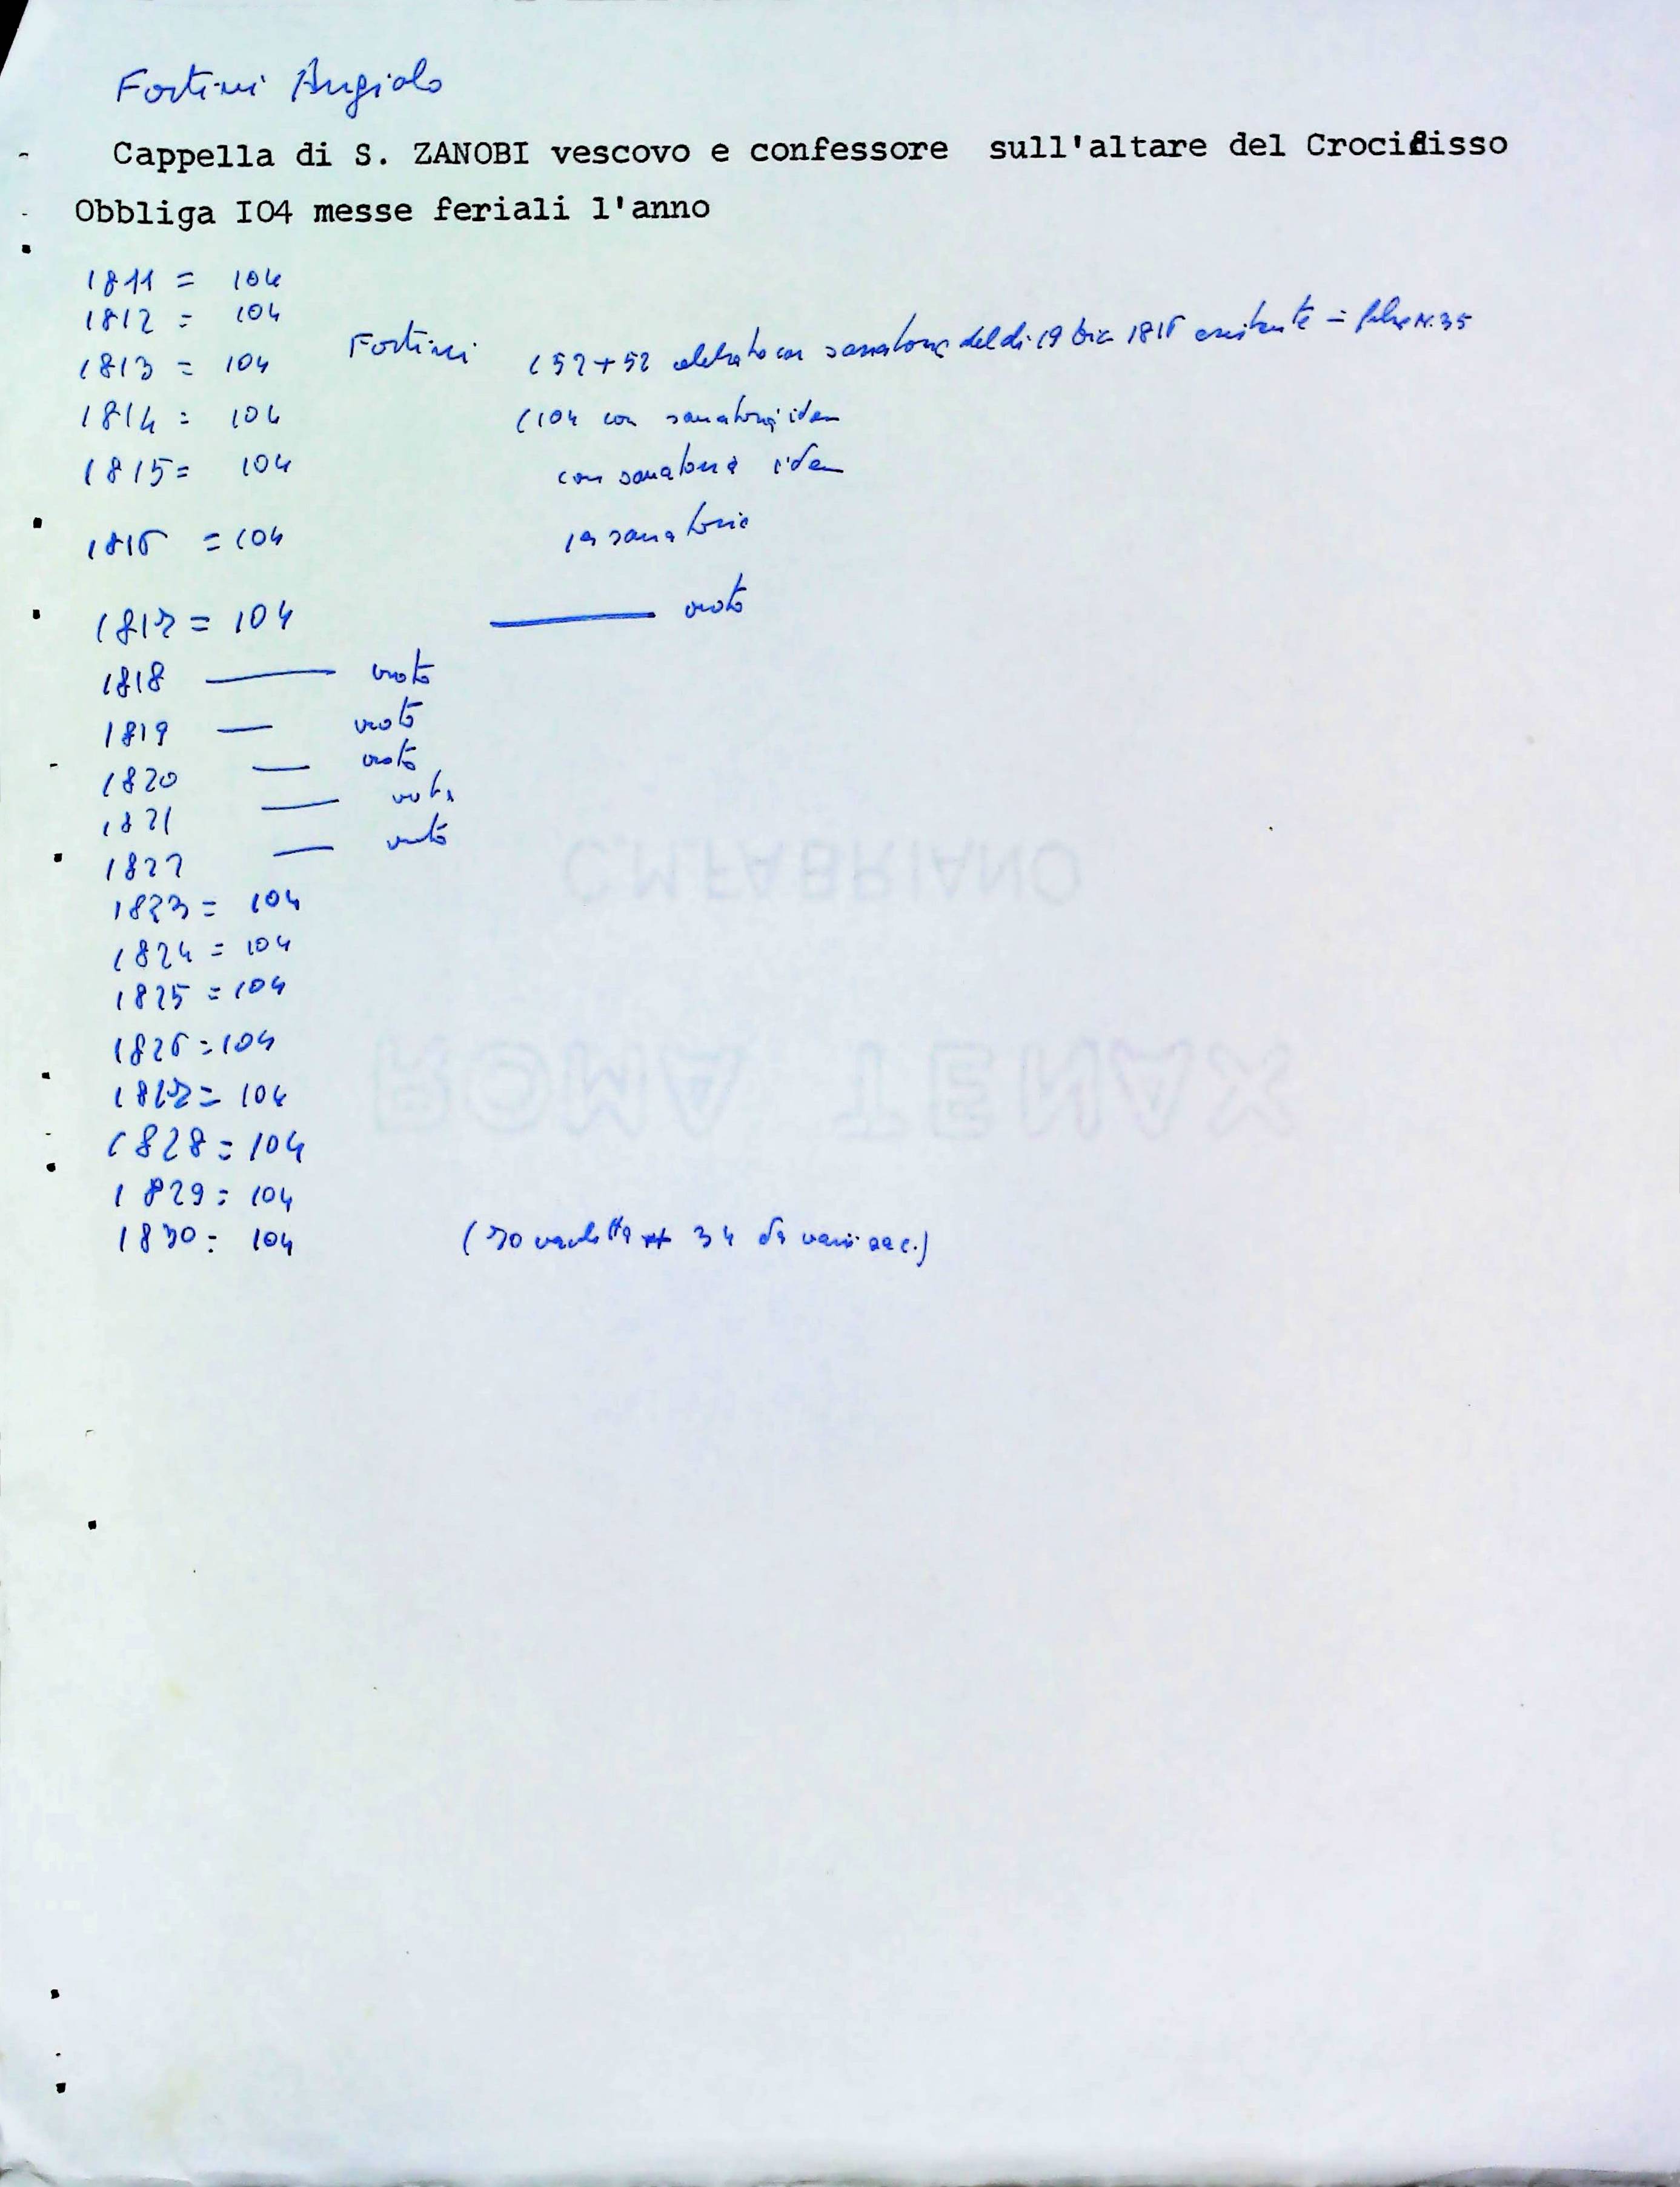 Fortini Angiolo
Cappella di S. ZANOBI vescovo e confessore sull'altare del Crocifisso
Obbliga IO4 messe feriali l'anno
1811 = 104
1812 = 104
1813 = 104 Fortini (52+52 con sanatoria del dì 19 1816 esistente = N. 35
1814 = 104 (104 con sanatoria idem
1815 = 104 con sanatoria idem
1816 = 104 sanatoria
1817 = 104 — vuoto
1818 — vuoto
1819 — vuoto
1820 — vuoto
1821 — vuoto
1822 — vuoto
1823 = 104
1824 = 104
1825 = 104
1826 = 104
1827 = 104
1828 = 104
1829 = 104
1830 = 104 (70 34 da vari sac.)
C.M.FABRIANO
ROMA TENAX